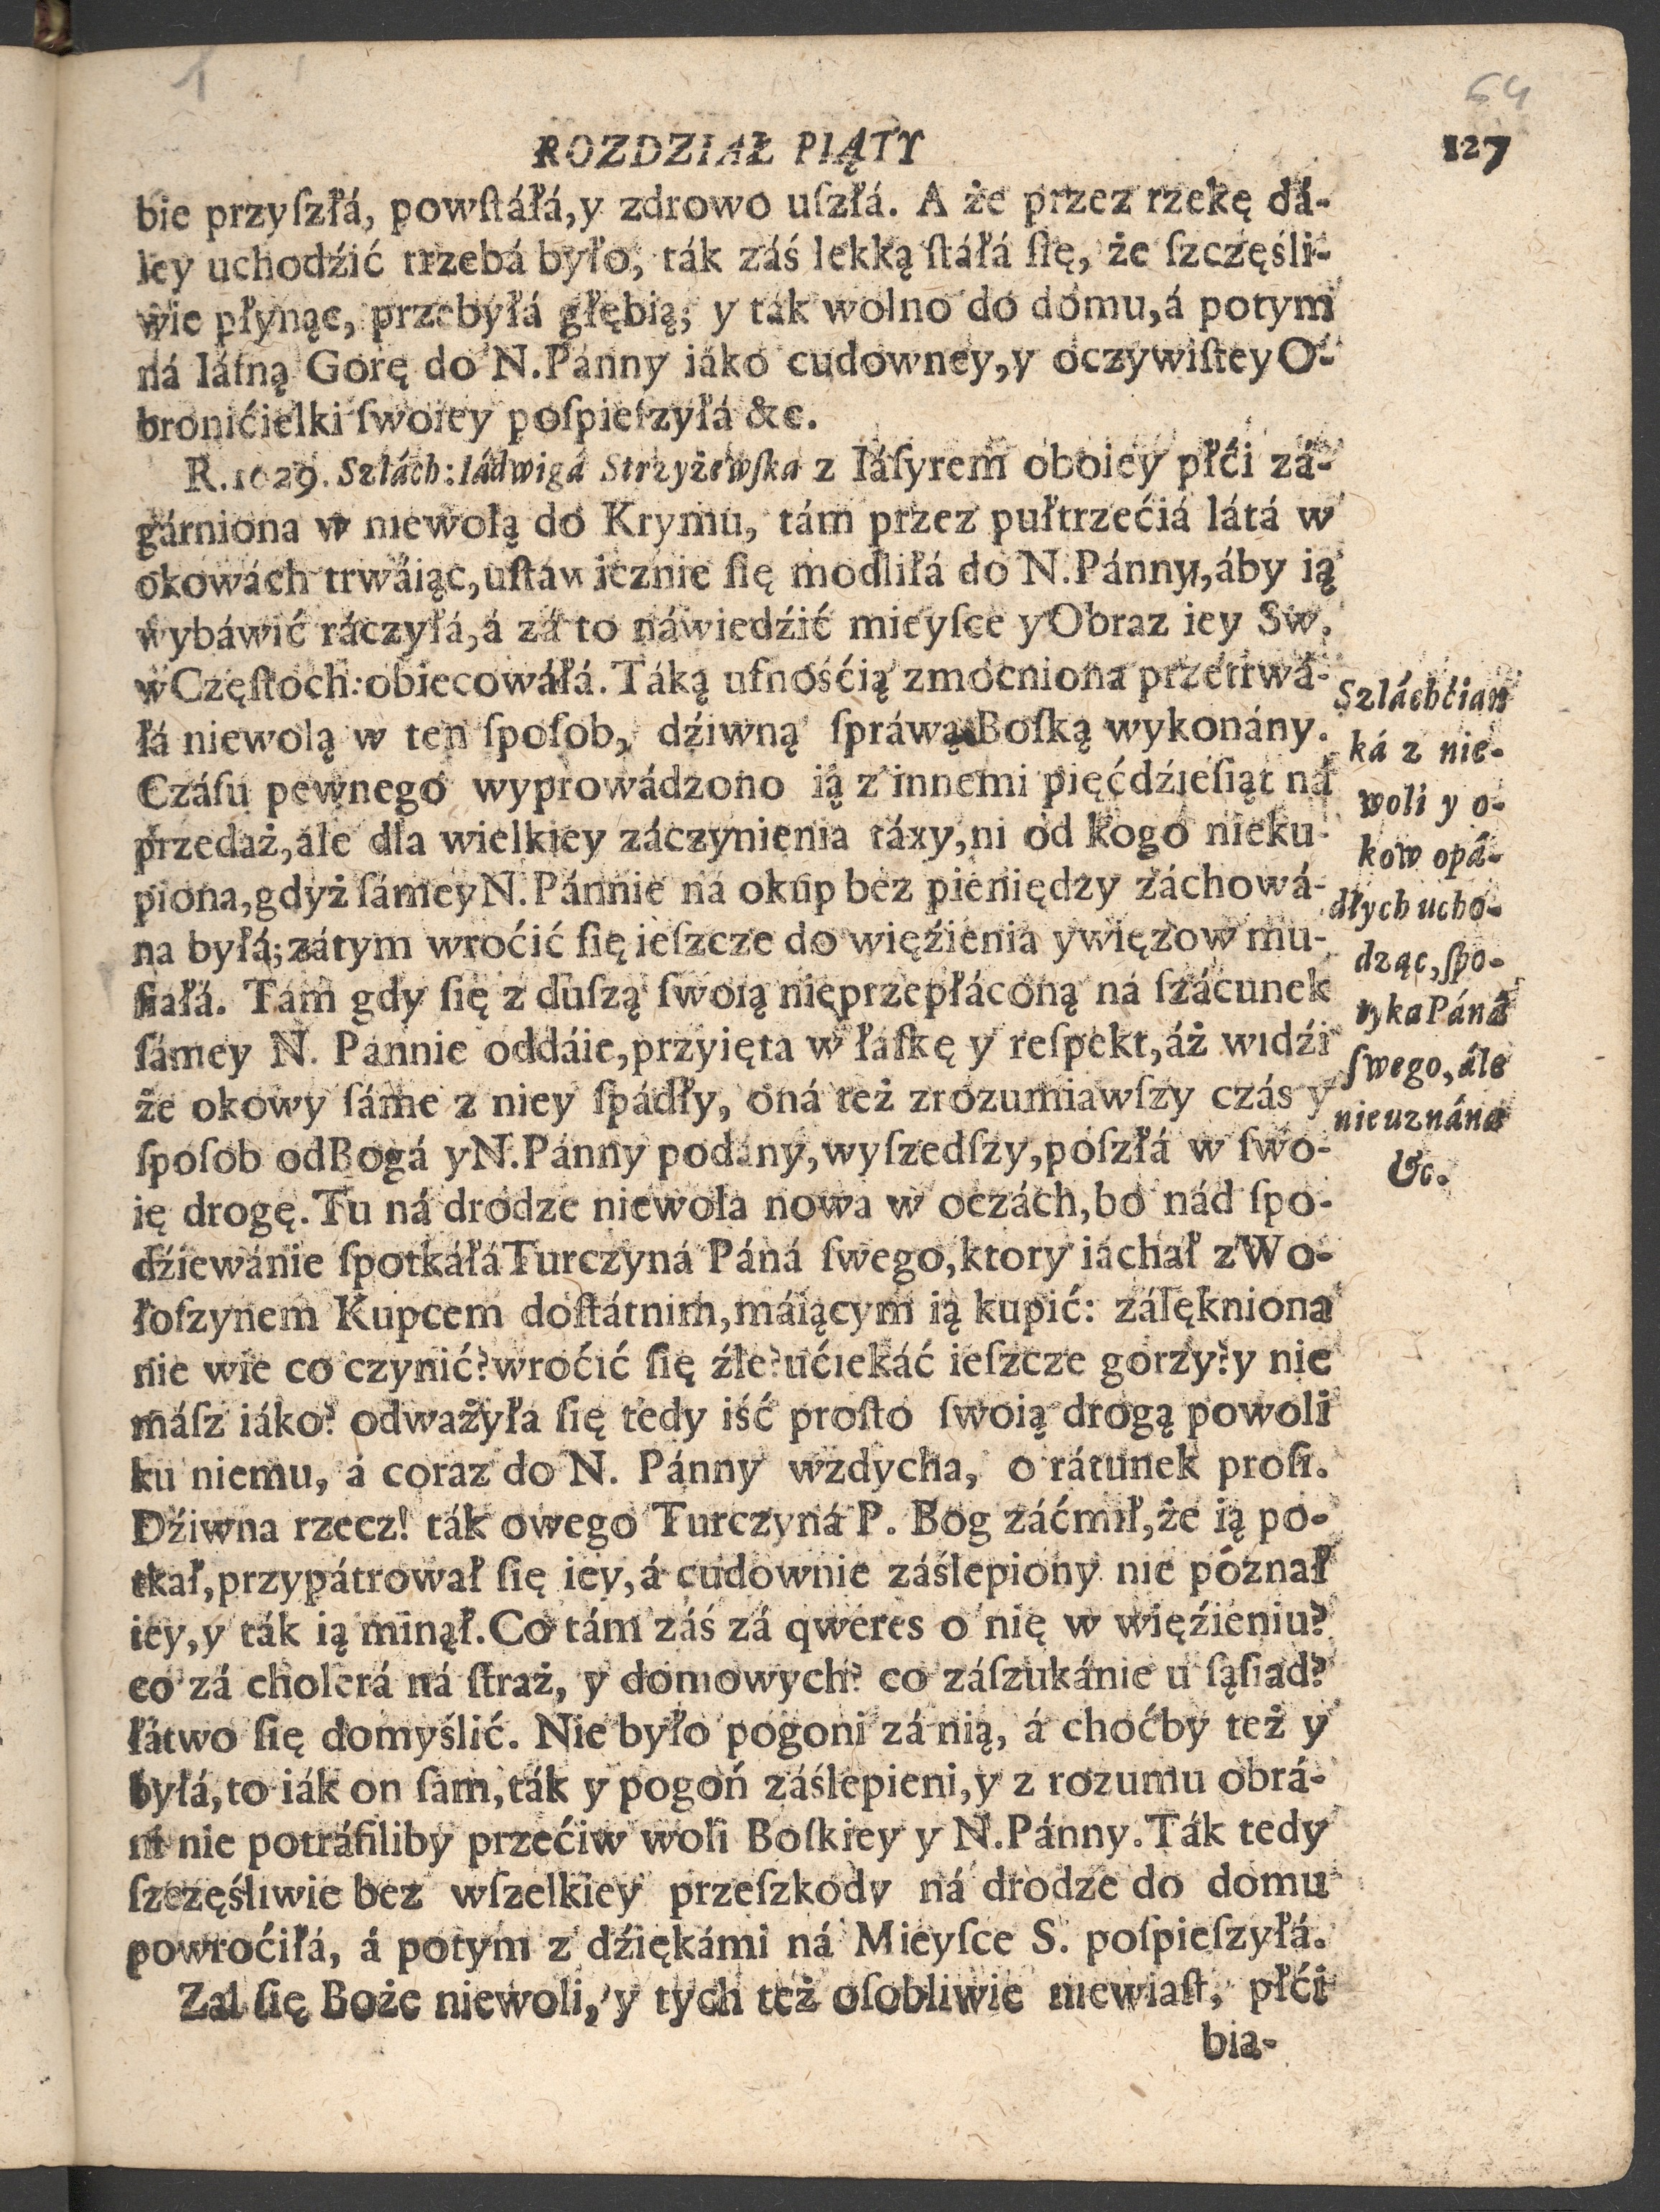 1
64
ROZDZIAŁ PIĄTY
127
bie przyſzłá, powſtáłá, y zdrowo uſzłá. A że przez rzekę dá-
ley uchodźić trzebá było, ták záś lekką ſtáłá ſię, że ſzczęśli-
wie płynąc, przebyłá głębią, y ták wolno do domu, á potym
ná Iáſną Gorę do N. Pánny iáko cudowney, y oczywiſtey O-
bronićielki ſwoiey poſpieſzyłá &c.
R. 1629. Szlách: Iádwigá Strzyżewſka z Iáſyrem oboiey płći zá-
gárniona w niewolą do Krymu, tám przez pułtrzećiá látá w
okowách trwáiąc, uſtáwicznie ſię modliłá do N. Pánny, áby ią
wybáwić ráczyłá, á zá to náwiedźić mieyſce y Obraz iey Sw.
w Częſtoch: obiecowáłá. Táką ufnośćią zmocniona przetrwá-
łá niewolą w ten ſpoſob, dźiwną ſpráwą Boſką wykonány.
Czáſu pewnego wyprowádzono ią z innemi pięćdźieſiąt ná
przedaż, ále dla wielkiey záczynienia táxy, ni od kogo nieku-
piona, gdyż ſámey N. Pánnie ná okup bez pieniędzy záchowá-
na byłá; zátym wroćić ſię ieſzcze do więźienia y więzow mu-
ſiałá. Tám gdy ſię z duſzą ſwoią nieprzepłáconą ná ſzácunek
ſámey N. Pánnie oddáie, przyięta w łáſkę y reſpekt, áż widźi
że okowy ſáme z niey ſpádły, oná też zrozumiawſzy czás y
ſpoſob od Bogá y N. Pánny podány, wyſzedſzy, poſzłá w ſwo-
ię drogę. Tu ná drodze niewola nowa w oczách, bo nád ſpo-
dźiewánie ſpotkáłá Turczyná Páná ſwego, ktory iáchał z Wo-
łoſzynem Kupcem doſtátnim, máiącym ią kupić: zálękniona
nie wie co czynić? wroćić ſię źle? ućiekáć ieſzcze gorzy? y nie
máſz iáko? odważyła ſię tedy iść proſto ſwoią drogą powoli
ku niemu, á coraz do N. Pánny wzdycha, o rátunek proſi.
Dźiwna rzecz! ták owego Turczyná P. Bog záćmił, że ią po-
tkał, przypátrował ſię iey, á cudownie záślepiony nie póznał
iey, y ták ią minął. Co tám záś zá qweres o nię w więźieniu?
co zá cholerá ná ſtraż, y domowych? co zá ſzukánie u ſąſiad?
łátwo ſię domyślić. Nie było pogoni zá nią, á choćby też y
byłá, to iák on ſam, ták y pogoń záślepieni, y z rozumu obrá-
ni nie potráfiliby przećiw woli Boſkiey y N. Pánny. Ták tedy
ſzczęśliwie bez wſzelkiey przeſzkody ná drodze do domu
powroćiłá, á potym z dźiękámi ná Mieyſce S. poſpieſzyłá.
Zal ſię Boże niewoli, y tych też oſobliwie niewiaſt, płći
bia-
Szláchćian
ká z nie-
woli y o-
kow opá-
dłych ucho-
dząc, ſpo-
tyka Páná
ſwego, ále
nieuznáná
&c.